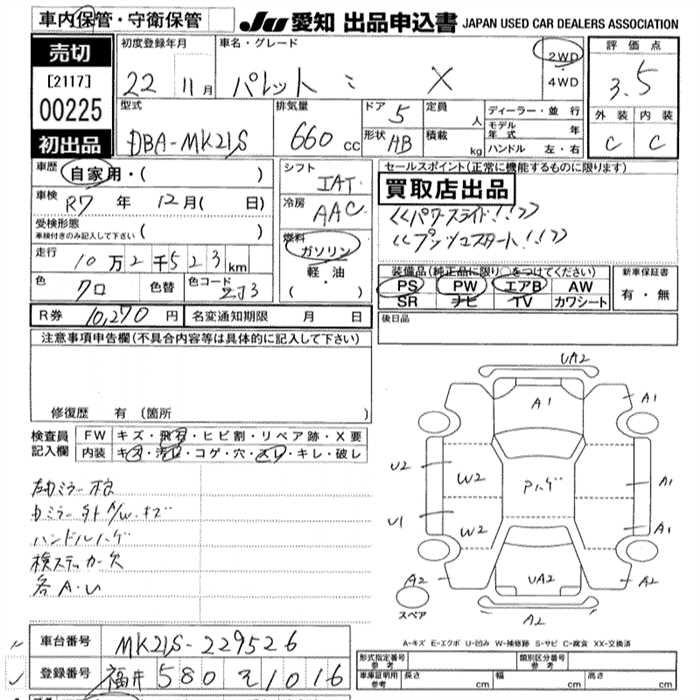 車内保管・守衛保管
JU 愛知 出品申込書 JAPAN USED CAR DEALERS ASSOCIATION
売切
[2117]
00225
初出品
初度登録年月 22 11月
車名・グレード パレット ミ X
2WD
4WD
評価点
3.5
外装 内装
C C
型式 DBA-MK21S
排気量 660 cc
ドア 5
形状 HB
定員 人
積載 kg
ディーラー・並行
モデル年式 年
ハンドル 左・右
車歴 自家用・( )
車検 R7 年 12月( 日)
受検形態
車検付きのみ記入して下さい ( )
走行 10万2千523km
色 クロ 色替 色コード ZJ3
シフト IAT
冷房 AAC
燃料 ガソリン
軽・油
・( )
セールスポイント(正常に機能するものに限ります)
買取店出品
<<パワースライド!!>>
<<プッシュスタート!!>>
装備品(純正品に限り○をつけてください)
PS PW エアB AW
SR ナビ TV カワシート
新車保証書
有・無
R券 10,270 円 名変通知期限 月 日
後日品
注意事項申告欄(不具合内容等は具体的に記入して下さい)
修復歴 有(箇所 )
検査員記入欄
FW キズ・飛石・ヒビ割・リペア跡・X要
内装 キズ・汚レ・コゲ・穴・スレ・キレ・破レ
ハンドルハゲ
検ステッカー欠
各A・U
UA2
A1
A1
U2
W2
Aハゲ
A1
U1
W2
A1
A2
UA2
A2
A2
スペア
A-キズ E-エクボ U-凹み W-補修跡 S-サビ C-腐食 XX-交換済
車台番号 MK21S-229526
登録番号 福井 580 そ 1016
形式指定番号 参考
類別区分番号 参考
車庫証明用 参考 長さ cm 幅 cm 高さ cm